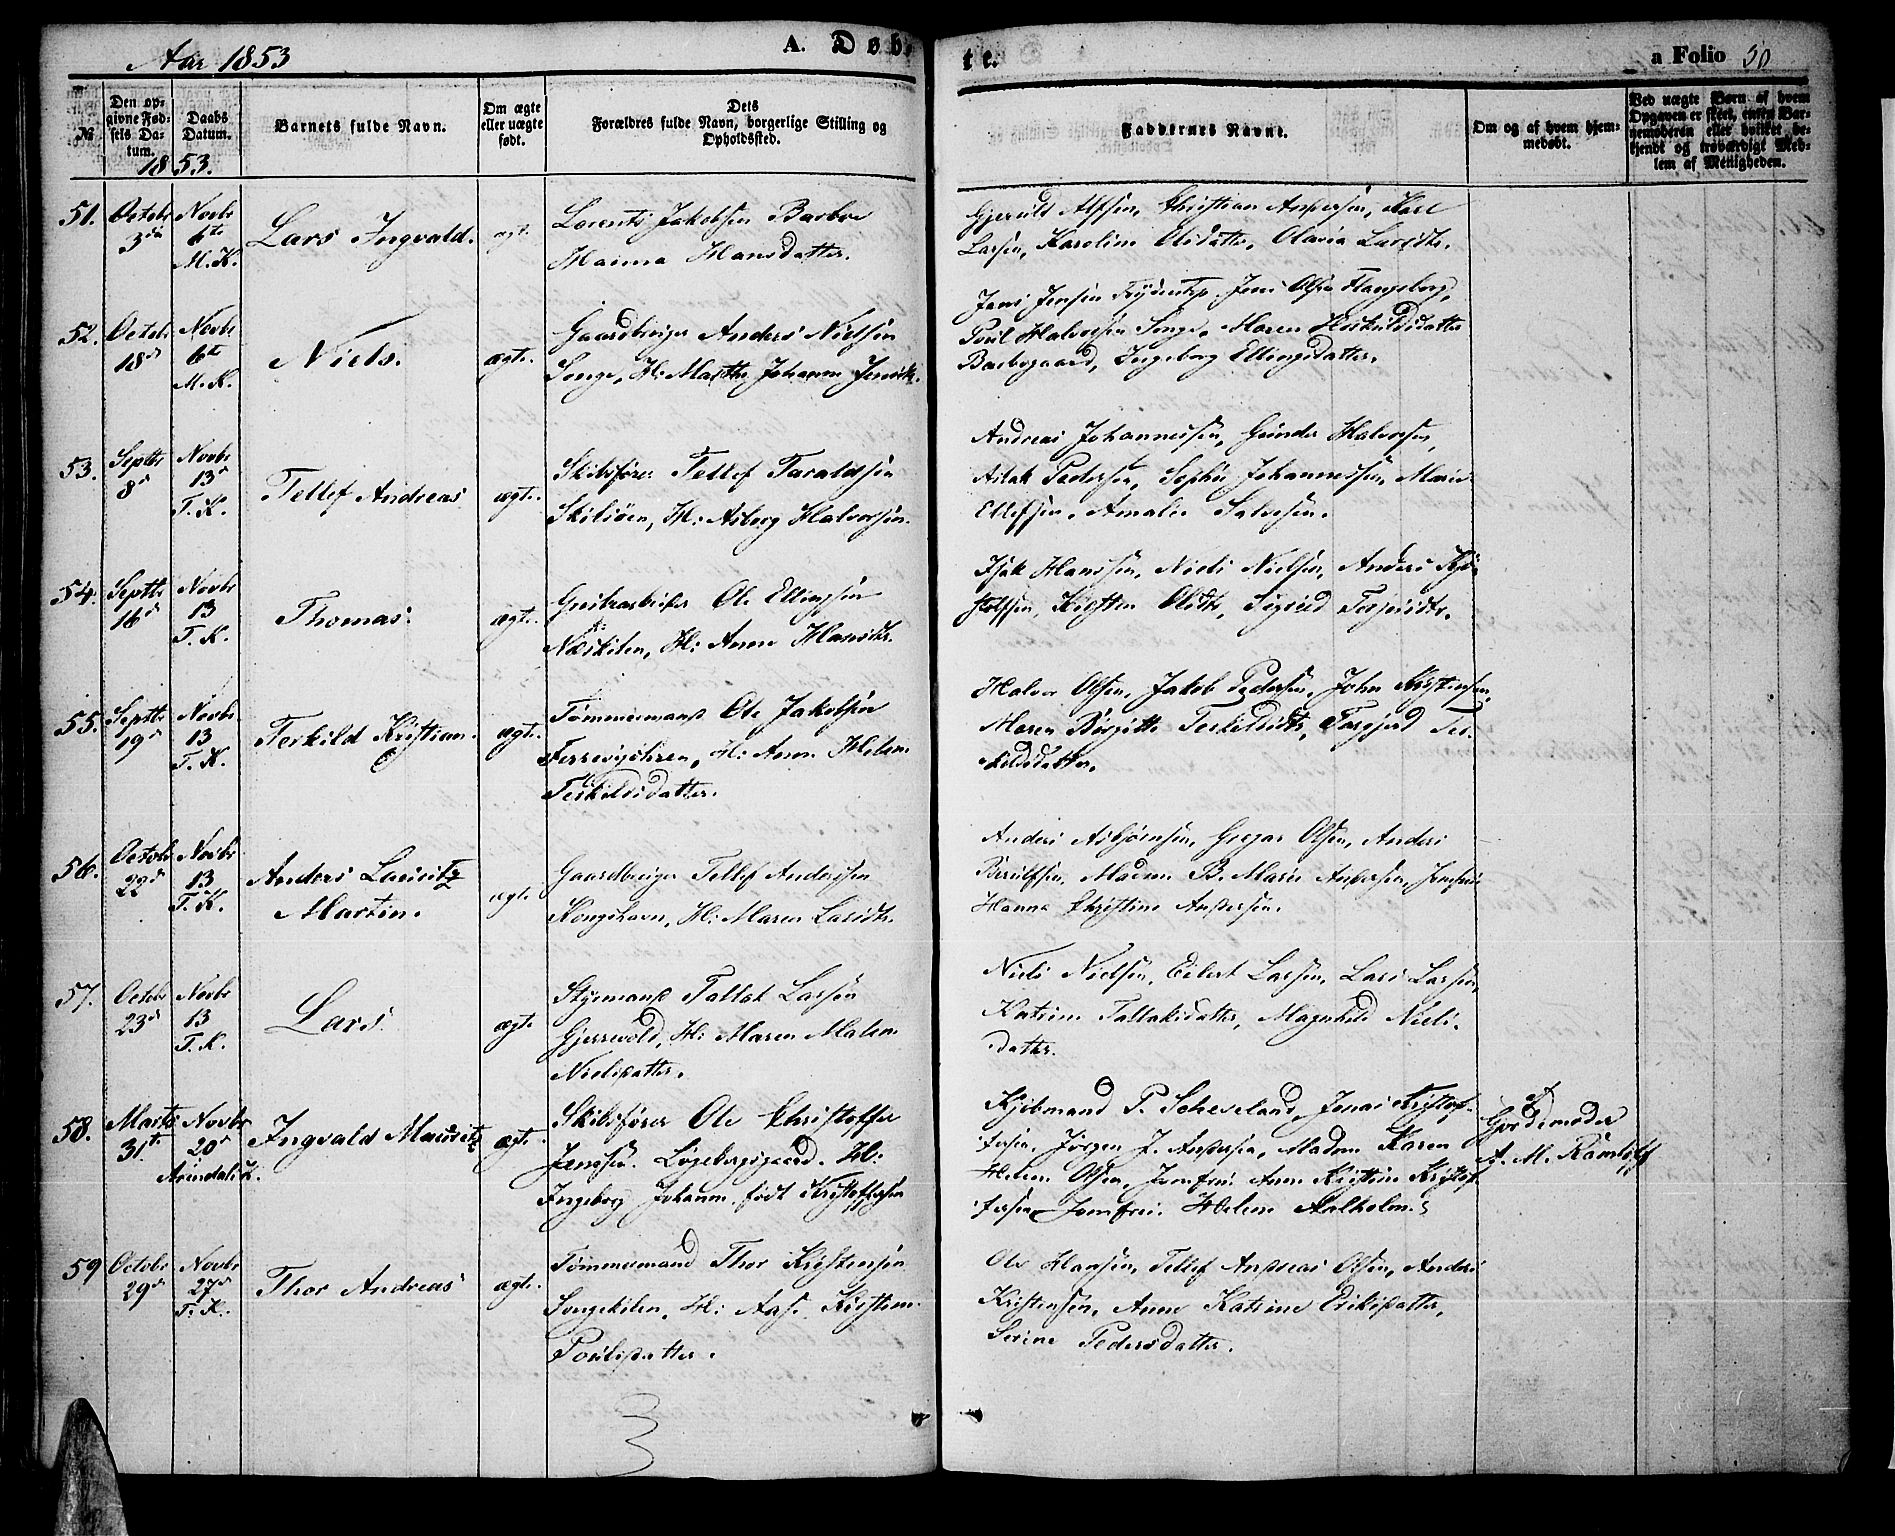 Aar 1853
A. Døb-
te.
a Folio 50
№
Den op-
givne Fød-
sels Da-
tum.
Daabs
Datum.
Barnets fulde Navn.
Om ægte
eller uægte
født.
Dets
Forældres fulde Navn, borgerlige Stilling og
Opholdssted.
Faddernes Navne.
Om og af hvem hjem-
medøbt.
Ved uægte Børn af hvem
Opgaven er skeet, enten Bar-
nemoderen eller hvilket be-
kjendt og troværdigt Med-
lem af Menigheden.
1853.
51.
Octobr
3die
Novbr
6te
M. K.
Lars Ingvald.
ægt.
Lorents Jakobsen Barbo
Hansdatter.
Gjeruld Alfsen, Christian Andersen, Karl
Larsen, Karoline Olsdatter, Olavia Larsdtr.
52.
Octobr
18d
Novbr
6te
M. K.
Niels.
ægte.
Gaardbruger Anders Nielsen
Songe, H: Marthe Johanne Jensdtr.
Jens Jensen Jens Olsen Flangeborg,
Poul Halvorsen Songe, Maren Hoskuldsdatter
Barbogaard, Ingeborg Ellingsdatter.
53.
Septbr
8d
Novbr
13d
T. K.
Tellef Andreas
ægte.
Skibsfører Tellef Taraldsen
Skilsøen, H: Asberg Halvorsen.
Andreas Johannessen, Gunder Halvorsen,
Aslak Pedersen, Sophie Johannessen, Marie
Ellefsen, Amalie Salvesen.
54.
Septbr
16d
Novbr
13
T. K.
Thomas.
ægte.
Grubearbeider Ole Ellingsen
Næskilen, H: Anne Hansdtr.
Isak Hanssen, Niels Nielsen, Anders
Kirsten Olsdtr, Sigrid Terjesdtr.
55.
Septbr
19d
Novbr
13
T. K.
Terkild Kristian.
ægte.
Tømmermand Ole Jakobsen
H: Anne Helene
Terkildsdatter.
Halvor Olsen, Jakob Pedersen, John Kristensen,
Maren Birgitte Terkildsdtr, Torgjerd Ter-
kildsdatter.
56.
Octobr
22d
Novbr
13
T. K.
Anders Lauritz
Martin.
ægte.
Gaardbruger Tellef Anderssen
Kongshavn, H: Maren Larsdtr.
Anders Asbjørnsen, Gregar Olsen, Anders
Berulfsen, Madam B. Marie Andersen, Jomfru
Hanna Christine Andersen.
57.
Octobr
23d
Novbr
13
T. K.
Lars
ægte
Styrmand Tallak Larsen
Gjerrevold, H: Maren Malene
Nielsdatter.
Niels Nielsen, Eilert Larsen, Lars Larsen,
Katrine Tallaksdatter, Magnhild Niels-
datter.
58.
Marts
31te
Novbr
20d
Arendals K.
Ingvald Mauritz
ægte.
Skibsfører Ole Christoffer
Jenssen. Løgebergsgaard. H:
Ingeborg Johanne født Kristoffersen
Kjøbmand P. Scheveland, Jonas Kristof-
fersen, Jørgen J. Andersen, Madam Karen
Helene Olsen, Jomfru Anne Kirstine Kristof-
fersen, Jomfru Helene Aalholm.
af
Gjordemoder
A. M. Ramløff
59
Octobr
29d
Novbr
27d
T. K.
Thor Andreas
ægte.
Tømmermand Thor Kristensen
Songekilen, H: Aase Kirstine
Poulsdatter.
Ole Hansen, Tellef Andreas Olsen, Anders
Kristensen, Anne Katrine Eriksdatter,
Serine Pedersdatter.